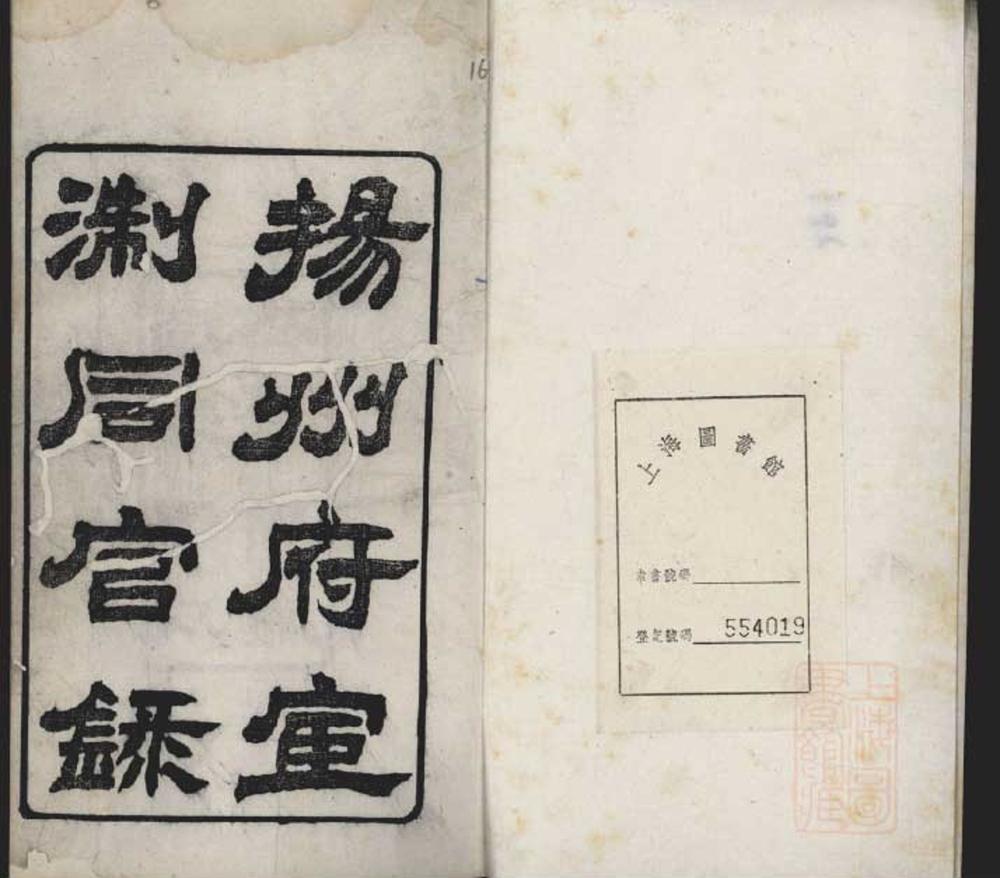 揚州府宦
淛同官錄
16
上海圖書館
索書號碼
登記號碼 554019
上海圖
書館藏